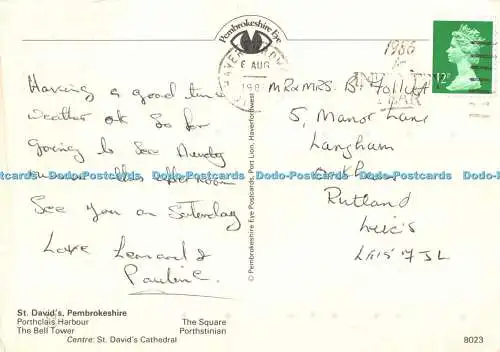 Pembrokeshire Eye
6 AUG
1986
INDUSTRY
YEAR
12P
Having a good time
weather ok so far
going to see
this afternoon
See you on Saturday
Love Leonard &
Pauline.
MR & MRS. B.
5, Manor Lane
Langham
Oakham
Rutland
Leics
LE15 7JL
© Pembrokeshire Eye Postcards, Port Lion, Haverfordwest
Dodo-Postcards Dodo-Postcards Dodo-Postcards Dodo-Postcards
St. David's, Pembrokeshire
Porthclais Harbour The Square
The Bell Tower Porthstinian
Centre: St. David's Cathedral
8023